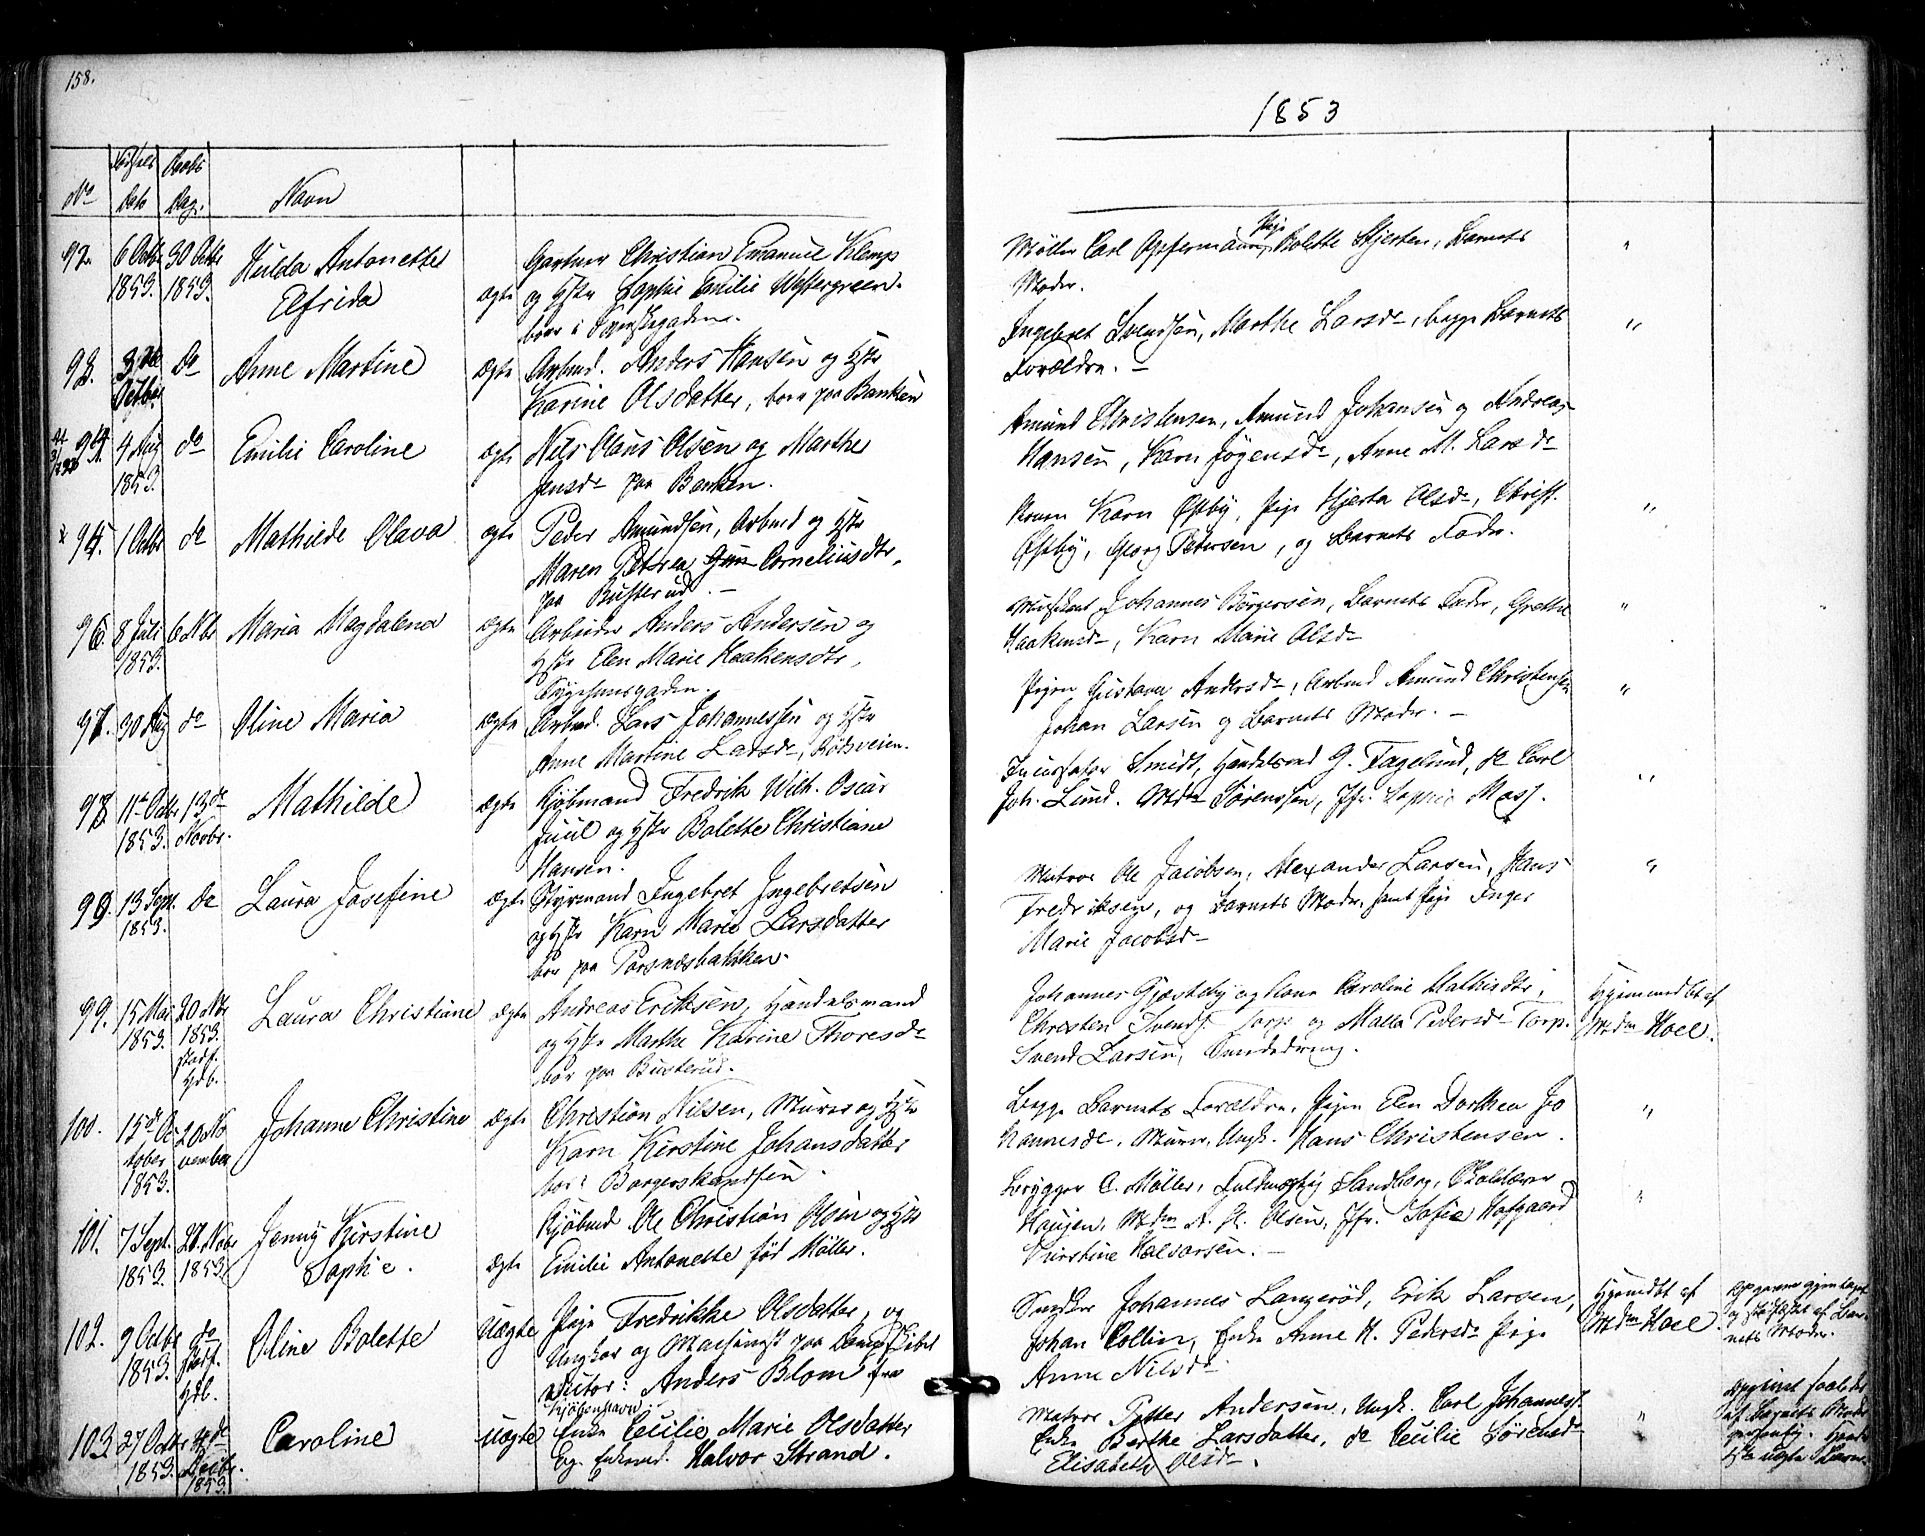 158.
1853
No
Fødsels
Dato
Daabs
Dag.
Navn
92. 6 Octbr 1853. 30 Octbr 1853. Hulda Antonette
Elfrida
ægte
Gartner Christian Emanuel Klemp
og Hstr Sophie Emilie Westergreen.
boer i
Møller Carl Opfermann, Pige Bolette Hjerten, Barnets
Moder.
"
93. 3die Octbr Do Anne Martine
ægte
Arbmd. Anders Hansen og Hstr
Karine Olsdatter, boer paa Banken
Ingebret Svendsen, Marthe Larsd., begge Barnets
Forældre. —
"
94. 4 Aug 1853. do Emilie Caroline
ægte
Nils Claus Olsen og Marthe
Jensd. paa Banken.
Amund Christensen, Amund Johansen og Andreas
Hansen, Karn Jøgensd., Anne M. Larsd.
95. 1 Octbr do Mathilde Olava
ægte
Peder Amundsen, Arbmd og Hstr
Maren Petrea Corneliusdtr.
paa Busterud. —
Konen Karn Østby, Pige Hjerta Olsd., Christ.
Østby, Georg Petersen, og Barnets Fader.
"
96. 8 Juli 1853. 6 Nbr Maria Magdalena
ægte
Arbeider Anders Andersen og
Hstr Elen Marie Haakensdtr,
Sygehuusgaden.
Musikant Johannes Børgersen, Barnets Fader, Grethe
Haakensd., Karn Marie Olsd.
"
97. 30 Aug do Oline Maria
ægte
Arbmd. Lars Johannessen og Hstr
Anne Martine Larsd., Rødsveien.
Pigen Gustava Andersd., Arbmd Amund Christensen
Johan Larsen og Barnets Moder. —
"
98. 11te Octbr 1853. 13de Novbr. Mathilde
ægte
Kjøbmand Fredrik Wilh. Oscar
Juul og Hstr Bolette Christiane
Hansen.
Smidt, Handelsmd G. Fagelund, do Carl
Joh. Lund. Mdm Sørenssen, Jfr. Sophie Moss.
"
99. 13 Sept. 1853. do Laura Josefine
ægte
Styrmand Ingebret Ingebretsen
og Hstr Karn Marie Larsdatter
boe paa Torsnesbakken.
Matros Ole Jacobsen, Alexander Larsen, Hans
Fredriksen, og Barnets Moder, samt Pige Inger
Marie Jacobsd.
"
99. 15 Mai 1853. 20 Nbr 1853. Stadf. Hdb. Laura Christiane
ægte
Andreas Eriksen, Handelsmand
og Hstr Marthe Karine Thoresd.
boe paa Busterud.
Johannes Gjæsteby og Kone Caroline Mathisdtr,
Christen Svends. Torp og Malla Pedersd. Torp.
Svend Larsen,
Hjemmedbt af
Mdm Hoel.
100. 15de October 1853. 20 November Johanne Christine
ægte
Christian Nilsen, Murer og Hstr
Karn Kirstine Johansdatter
boe: Borgerskandsen
Begge Barnets Forældre, Pigen Elen Dorthea Jo
hannesd., Murer, Ungk. Hans Christensen.
"
101. 7 Sept. 1853. 27. Novbr 1853. Jenny Kirstine
Sophie.
ægte
Kjøbmd Ole Christian Olsen og Hstr
Emilie Antonette født Møller.
Brygger C. Møller, Fuldmægtig Sandberg, Skolelærer
Haugen, Mdm A. H. Olsen, Jfr. Sofie Hofgaard
Kirstine Halvorsen. —
"
102. 9 Octbr 1853. do Stadf. Hdb. Oline Bolette
Uægte
Pige Fredrikke Olsdatter, og
Ungkar og Maskinist paa Dampskibet
Victor: Anders Blom fra
Kjøbenhavn.
Snedker Johannes Langerød, Erik Larsen,
Johan Collin, Enke Anne H. Pedersd. Pige
Anne Nilsd.
Hjemdbt af
Mdm Hoel.
Opgaven gjentaget
og af Bar-
nets Moder.
103. 27 Octbr 1853. 4de Decbr. 1853. Caroline
Uægte
Enke Cecilie Marie Olsdatter
og Enkemd. Halvor Strand.
Matros Petter Andersen, Ungk. Carl Johanness.
Enke Berthe Larsdatter, do Cecilie Sørensd.
Elisabeth Olsd.
"
Opgivet saaledes
af Barnets Moder